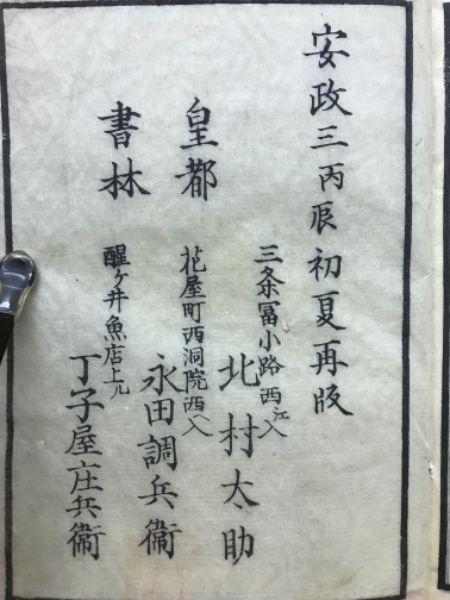 安政三丙辰初夏再版
皇都
書林
三条冨小路西江入
北村太助
花屋町西洞院西へ入
永田調兵衛
醒ヶ井魚店上ル
丁子屋庄兵衛